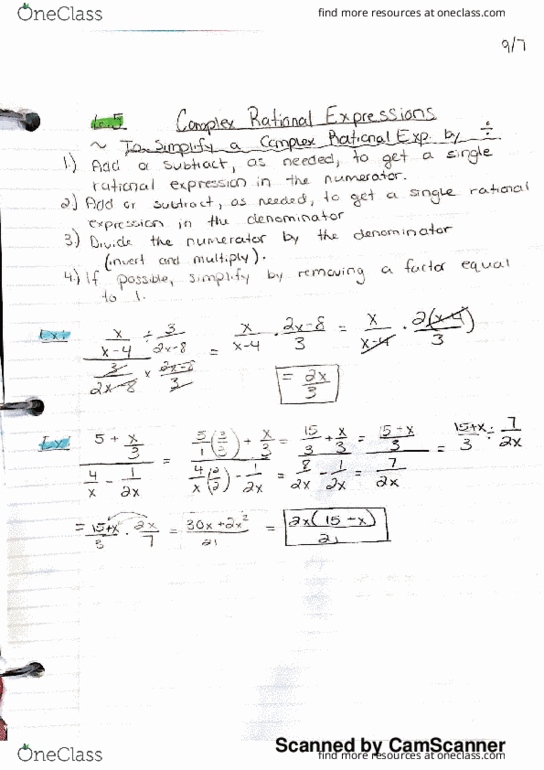 OneClass
find more resources at oneclass.com
9/7
6.5 Complex Rational Expressions
~ To Simplify a Complex Rational Exp. by ÷.
1) Add or subtract, as needed, to get a single
rational expression in the numerator.
2) Add or subtract, as needed, to get a single rational
expression in the denominator
3) Divide the numerator by the denominator
(invert and multiply).
4) If possible, simplify by removing a factor equal
to 1.
Ex: (x/(x-4) ÷ 3/(2x-8)) / (3/(2x-8) × (2x-8)/3) = x/(x-4) · (2x-8)/3 = x/(x-4) · 2(x-4)/3
= 2x/3
Ex: (5 + x/3) / (4/x - 1/2x) = (5/1 (3/3) + x/3) / (4/x (2/2) - 1/2x) = (15/3 + x/3) / (8/2x - 1/2x) = ((15-x)/3) / (7/2x) = (15+x)/3 ÷ 7/2x
= (15+x)/3 · 2x/7 = (30x+2x²)/21 = 2x(15-x)/21
Scanned by CamScanner
OneClass
find more resources at oneclass.com